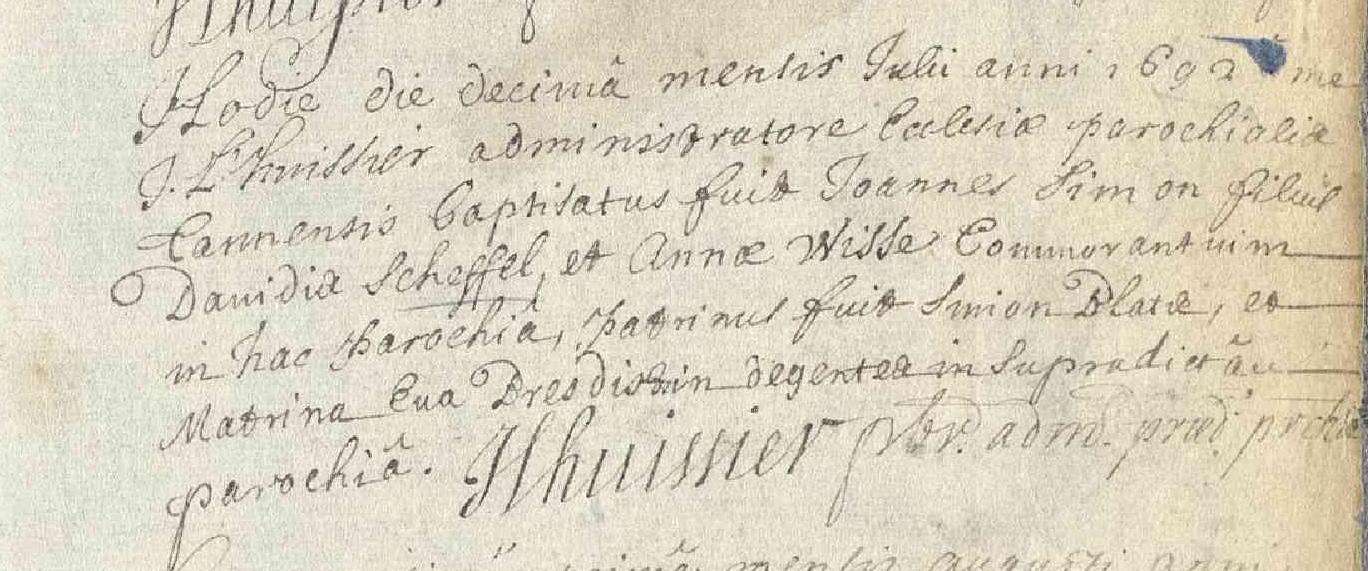 Hodie die decimâ mensis Julii anni 1692 me
J. L'huissier administratore Ecclesiæ parochialis
Cannensis baptisatus fuit Joannes Simon filius
Davidis Scheffel, et Annæ Wisse Commorantium
in hac parochiâ, patrinus fuit Simon Blaise, et
Matrina Eva degentes in supradictâ
parochiâ. JLhuissier pbr. adm. præd. prchiæ
mensis augusti anni